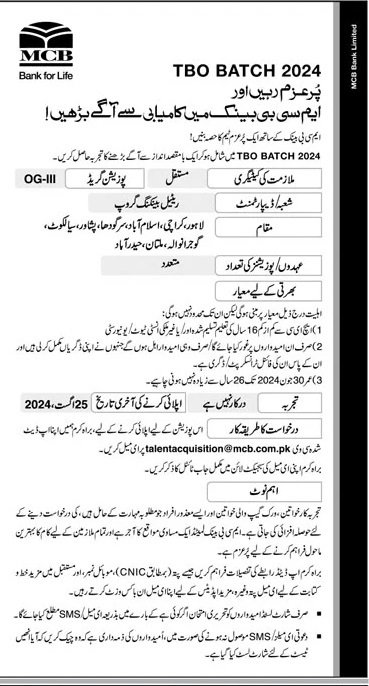 MCB
Bank for Life
MCB Bank Limited
TBO BATCH 2024
پُرعزم رہیں اور
ایم سی بی بینک میں کامیابی سے آگے بڑھیں!
ایم سی بی بینک کے ساتھ ایک پُرعزم ٹیم کا حصہ بنیں!
TBO BATCH 2024 میں شامل ہو کر ایک بامقصد انداز سے آگے بڑھنے کا تجربہ حاصل کریں۔
ملازمت کی کیٹیگری مستقل پوزیشن گریڈ OG-III
شعبہ/ڈیپارٹمنٹ ریٹیل بینکنگ گروپ
مقام لاہور، کراچی، اسلام آباد، سرگودھا، پشاور، سیالکوٹ،
گوجرانوالہ، ملتان، حیدرآباد
عہدوں/پوزیشنز کی تعداد متعدد
بھرتی کے لیے معیار
اہلیت درج ذیل معیار پر مبنی ہوگی لیکن ان تک محدود نہیں ہوگی:
1) ایچ ای سی سے کم از کم 16 سال کی تعلیم تسلیم شدہ اور/یا غیر ملکی انسٹی ٹیوٹ/یونیورسٹی
2) صرف ان امیدواروں پر غور کیا جائے گا/صرف وہی امیدوار اہل ہوں گے جنہوں نے اپنی ڈگریاں مکمل کرلی ہیں اور
ان کے پاس ان کی فائنل ٹرانسکرپٹ/ڈگری ہے۔
3) عمر 30 جون 2024 تک 26 سال سے زیادہ نہیں ہونی چاہیے۔
تجربہ درکار نہیں ہے اپلائی کرنے کی آخری تاریخ 25 اگست، 2024
درخواست کا طریقہ کار اس پوزیشن کے لیے اپلائی کرنے کے لیے، براہ کرم ہمیں اپنا اپ ڈیٹ
شدہ سی وی talentacquisition@mcb.com.pk پر ای میل کریں۔
براہ کرم اپنی ای میل کی سبجیکٹ لائن میں مکمل جاب ٹائٹل کا ذکر کریں۔
اہم نوٹ
تجربہ کار خواتین، ورک گیپ والی خواتین اور ایسے معذور افراد جو مطلوبہ مہارت کے حامل ہیں، کی درخواست دینے کے
لئے حوصلہ افزائی کی جاتی ہے۔ ایم سی بی بینک لمیٹڈ ایک مساوی مواقع کا آجر ہے اور تمام ملازمین کے لیے کام کا بہترین
ماحول فراہم کرنے کے لیے پُرعزم ہے۔
براہ کرم اپ ڈیٹڈ رابطے کی تفصیلات فراہم کریں جیسے پتہ (بمطابق CNIC)، موبائل نمبر، اور مستقبل میں مزید خط و
کتابت کے لیے ای میل پتہ وغیرہ، مزید اپ ڈیٹس کے لیے اپنا ای میل ان باکس وزٹ کرتے رہیں۔
صرف شارٹ لسٹڈ امیدواروں کو تحریری امتحان اگر کوئی ہے کے بارے میں بذریعہ ای میل/SMS مطلع کیا جائے گا۔
دعوتی ای میل/SMS موصول نہ ہونے کی صورت میں، امیدواروں کی ذمہ داری ہے کہ وہ چیک کریں کہ آیا انھیں
ٹیسٹ کے لئے شارٹ لسٹ کیا گیا ہے۔